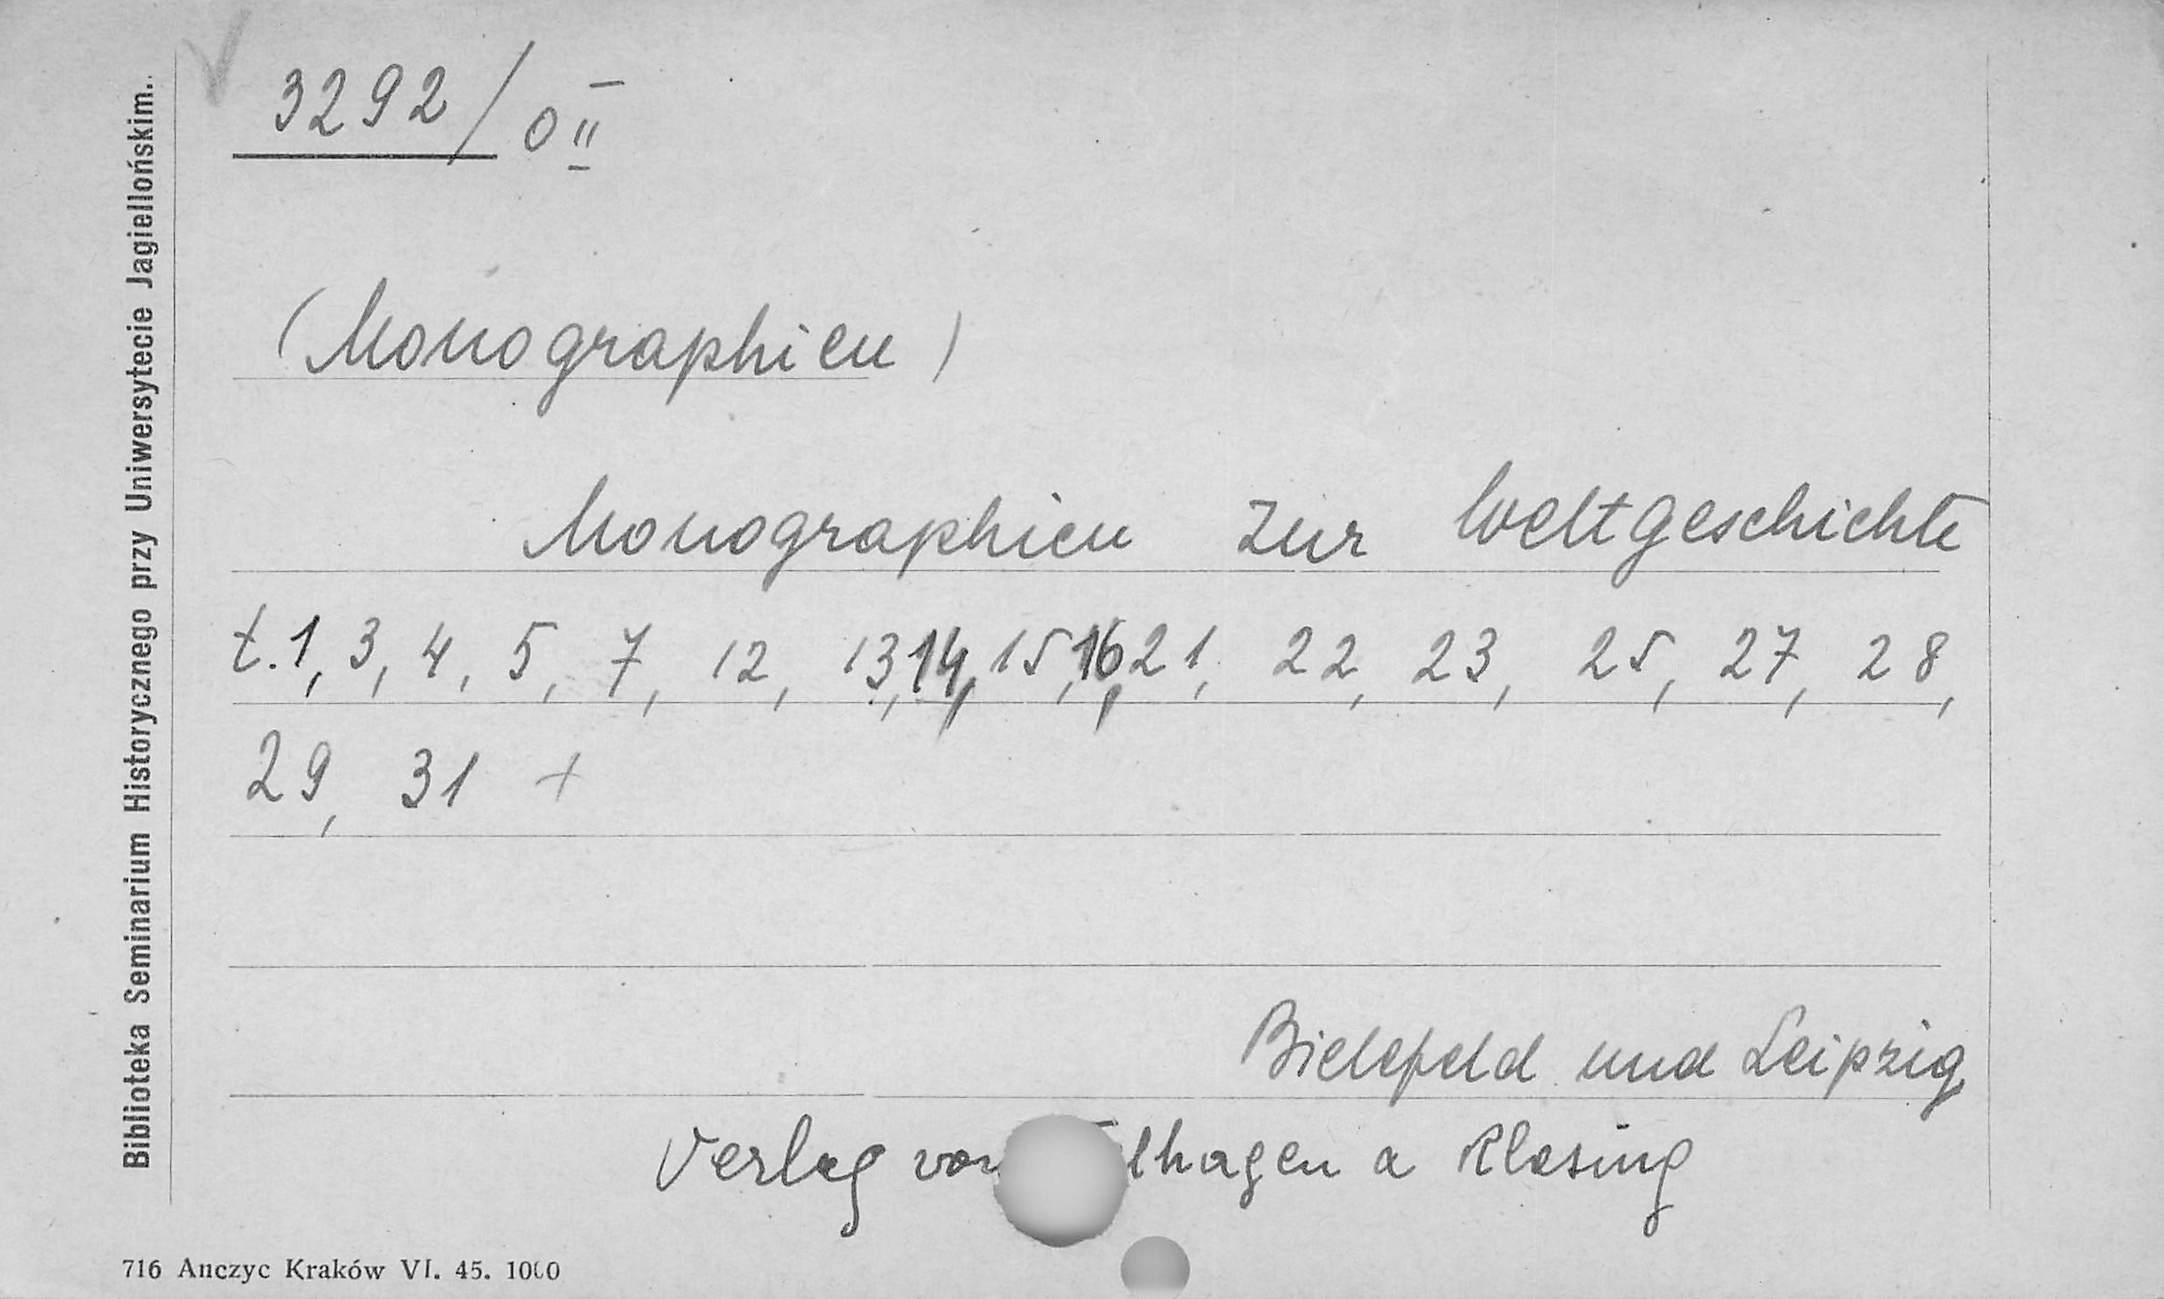 3292/0 II
(Monographien)
Monographien zur Weltgeschichte
t. 1, 3, 4, 5, 7, 12, 13, 14, 15, 16, 21, 22, 23, 25, 27, 28,
29, 31 +
Bielefeld und Leipzig
Verlag von lhagen a Klasing
Biblioteka Seminarium Historycznego przy Uniwersytecie Jagiellońskim.
716 Anczyc Kraków VI. 45. 1000